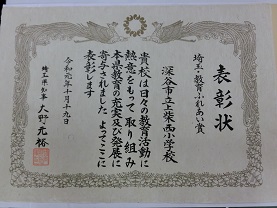 表彰状
埼玉・教育ふれあい賞
深谷市立上柴西小学校
貴校は日々の教育活動に
熱意をもって取り組み
本県教育の充実及び発展に
寄与されました よってここに
表彰します
令和元年十一月十九日
埼玉県知事 大野元裕